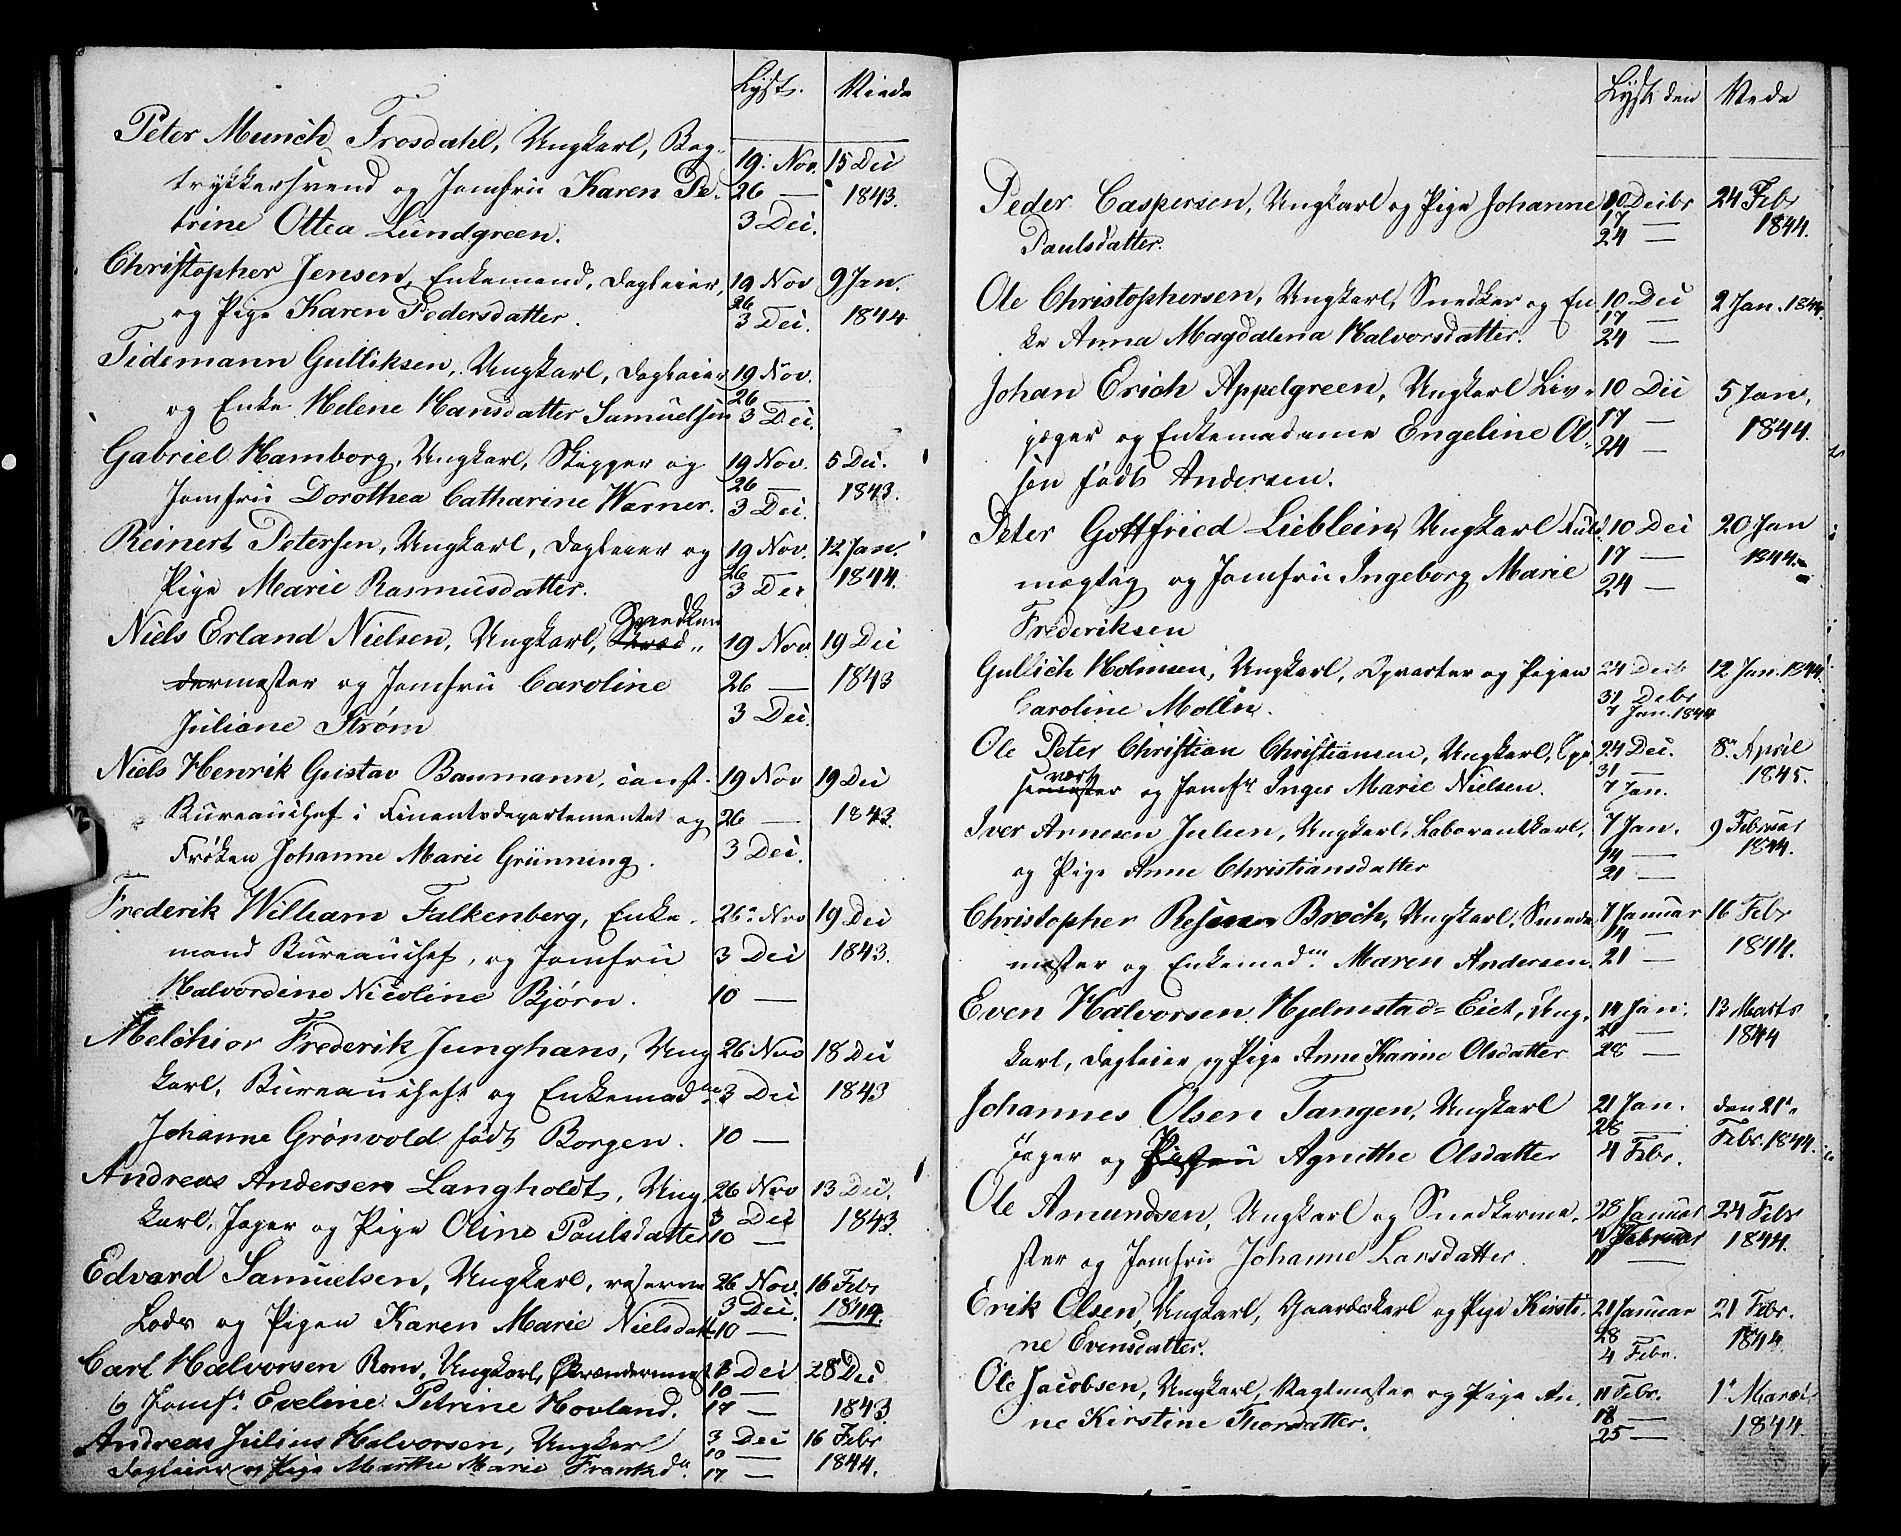 Lyst. Viede
Peter Munch Frosdahl, Ungkarl, Bog-
trykkersvend og Jomfru Karen Pe-
trine Ottea Lundgreen.
19. Nov. 15 Dec
26 — 1843.
3 Dec.
Christopher Jensen, Enkemand, Dagleier,
og Pige Karen Pedersdatter.
19 Nov 9 Jan.
26
3 Dec. 1844
Tidemann Gulliksen, Ungkarl, Dagleier
og Enke Helene Hansdatter Samuelsen
19 Nov.
26 —
3 Dec.
Gabriel Hamborg, Ungkarl, Skipper og
Jomfru Dorothea Catharine Warner.
19 Nov. 5 Dec.
26 — 1843.
3 Dec.
Reinert Petersen, Ungkarl, Dagleier og
Pige Marie Rasmusdatter.
19 Nov. 12 Jan.
26 — 1844.
3 Dec
Niels Erland Nielsen, Ungkarl, Snedker
dermester og Jomfru Caroline
Juliane Strøm
19 Nov. 19 Dec
26 — 1843
3 Dec.
Niels Henrik Gustav Baumann, const.
Bureauchef i Finantsdepartementet og
Frøken Johanne Marie Grünning.
19 Nov 19 Dec
26 — 1843.
3 Dec.
Frederik William Falkenberg, Enke-
mand Bureauchef, og Jomfru
Halvordine Nicoline Bjørn.
26 Nov 19 Dec
3 Dec 1843.
10 —
Melchior Frederik Junghans, Ung
karl, Bureauchef og Enkemad
Johanne Grønvold født Borgen.
26 Nov 18 Dec
3 Dec 1843
10 —
Andreas Andersen Langholdt, Ung
karl, Jager og Pige Oline Paulsdatter
26 Nov 13 Dec.
3 Dec 1843.
10 —
Edvard Samuelsen, Ungkarl, reserve
Lods og Pigen Karen Marie Nielsdatt
26 Nov. 16 Febr
3 Dec. 1844.
10 —
Carl Halvorsen Ungkarl,
og Jomfr. Eveline Petrine Hovland.
3 Dec 28 Dec
10 —
17 — 1843.
Andreas Julius Halvorsen, Ungkarl
Dagleier og Pige Marthe Marie Franksd.
3 Dec 16 Febr
10 — 1844.
17 —
Lyst den Viede
Peder Caspersen, Ungkarl og Pige Johanne
Paulsdatter.
10 Decbr 24 Febr
17 — 1844.
24 —
Ole Christophersen, Ungkarl, Snedker og En
ke Anna Magdalena Halvorsdatter.
10 Dec 2 Jan. 1844.
17 —
24 —
Johan Erich Appelgreen, Ungkarl Liv-
jæger og Enkemadame Engeline Ol-
sen født Andersen.
10 Dec 5 Jan.
17 — 1844.
24 —
Peter Gottfried Lieblein, Ungkarl Fuld
mægtig og Jomfru Ingeborg Marie
Frederiksen
10 Dec 20 Jan
17 — 1844.
24 —
Gullich Holmsen, Ungkarl, Opvarter og Pigen
Caroline Molln.
24 Decb 12 Jan. 1844.
31 Debr
7 Jan. 1844
Ole Peter Christian Christiansen, Ungkarl, Spi
vært
semester og Jomfr Inger Marie Nielsen.
24 Dec. 8 April
31 — 1845.
7 Jan.
Iver Arnesen Julsen, Ungkarl, Laborantkarl,
og Pige Anne Christiansdatter
7 Jan. 9 Februar
14 — 1844.
21 —
Christopher Broch, Ungkarl, Smede
mester og Enkemadm. Maren Andersen.
7 Januar 16 Febr
14 — 1844.
21 —
Even Halvorsen Hjelmstad=Eiet, Ung-
karl, Dagleier og Pige Anne Karine Olsdatter
14 Jan. 13 Marts
21 — 1844
28 —
Johannes Olsen Tangen, Ungkarl
Jager og Agnethe Olsdatter
21 Jan. den 21
28 — Febr. 1844.
4 Febr.
Ole Amundsen, Ungkarl og Snedkerme-
ster og Jomfru Johanne Larsdatter.
28 Januar 24 Febr
4 Februar 1844.
11 —
Erik Olsen, Ungkarl, Gaardskarl og Pige Kirsti-
ne Evensdatter.
21 Januar 21 Febr.
28 1844.
4 Febr.
Ole Jacobsen, Ungkarl, Vagtmester og Pige An-
ne Kirstine Thorsdatter.
11 Febr. 1 Marts
18 — 1844.
25 —